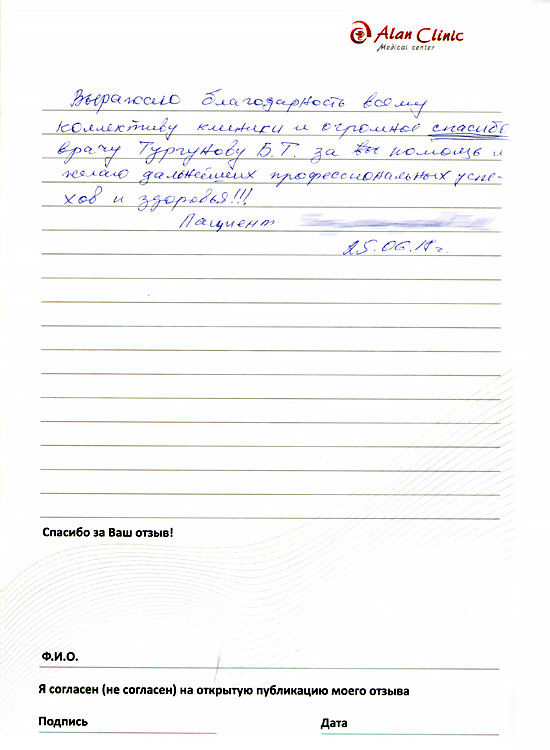 Alan Clinic
Medical center
Выражаю благодарность всему
коллективу клиники и огромное спасибо
врачу Тургунову Б.Т. за вы помощь и
желаю дальнейших профессиональных успе-
хов и здоровья!!!
Пациент
25.06.19г.
Спасибо за Ваш отзыв!
Ф.И.О.
Я согласен (не согласен) на открытую публикацию моего отзыва
Подпись Дата